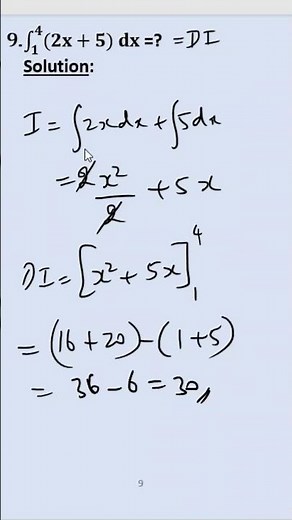 9.∫₁⁴(2x + 5) dx =? = DI
Solution:
I = ∫2xdx + ∫5dx
= 2x²/2 + 5x
DI = [x² + 5x]₁⁴
= (16 + 20) – (1 + 5)
= 36 – 6 = 30,
9